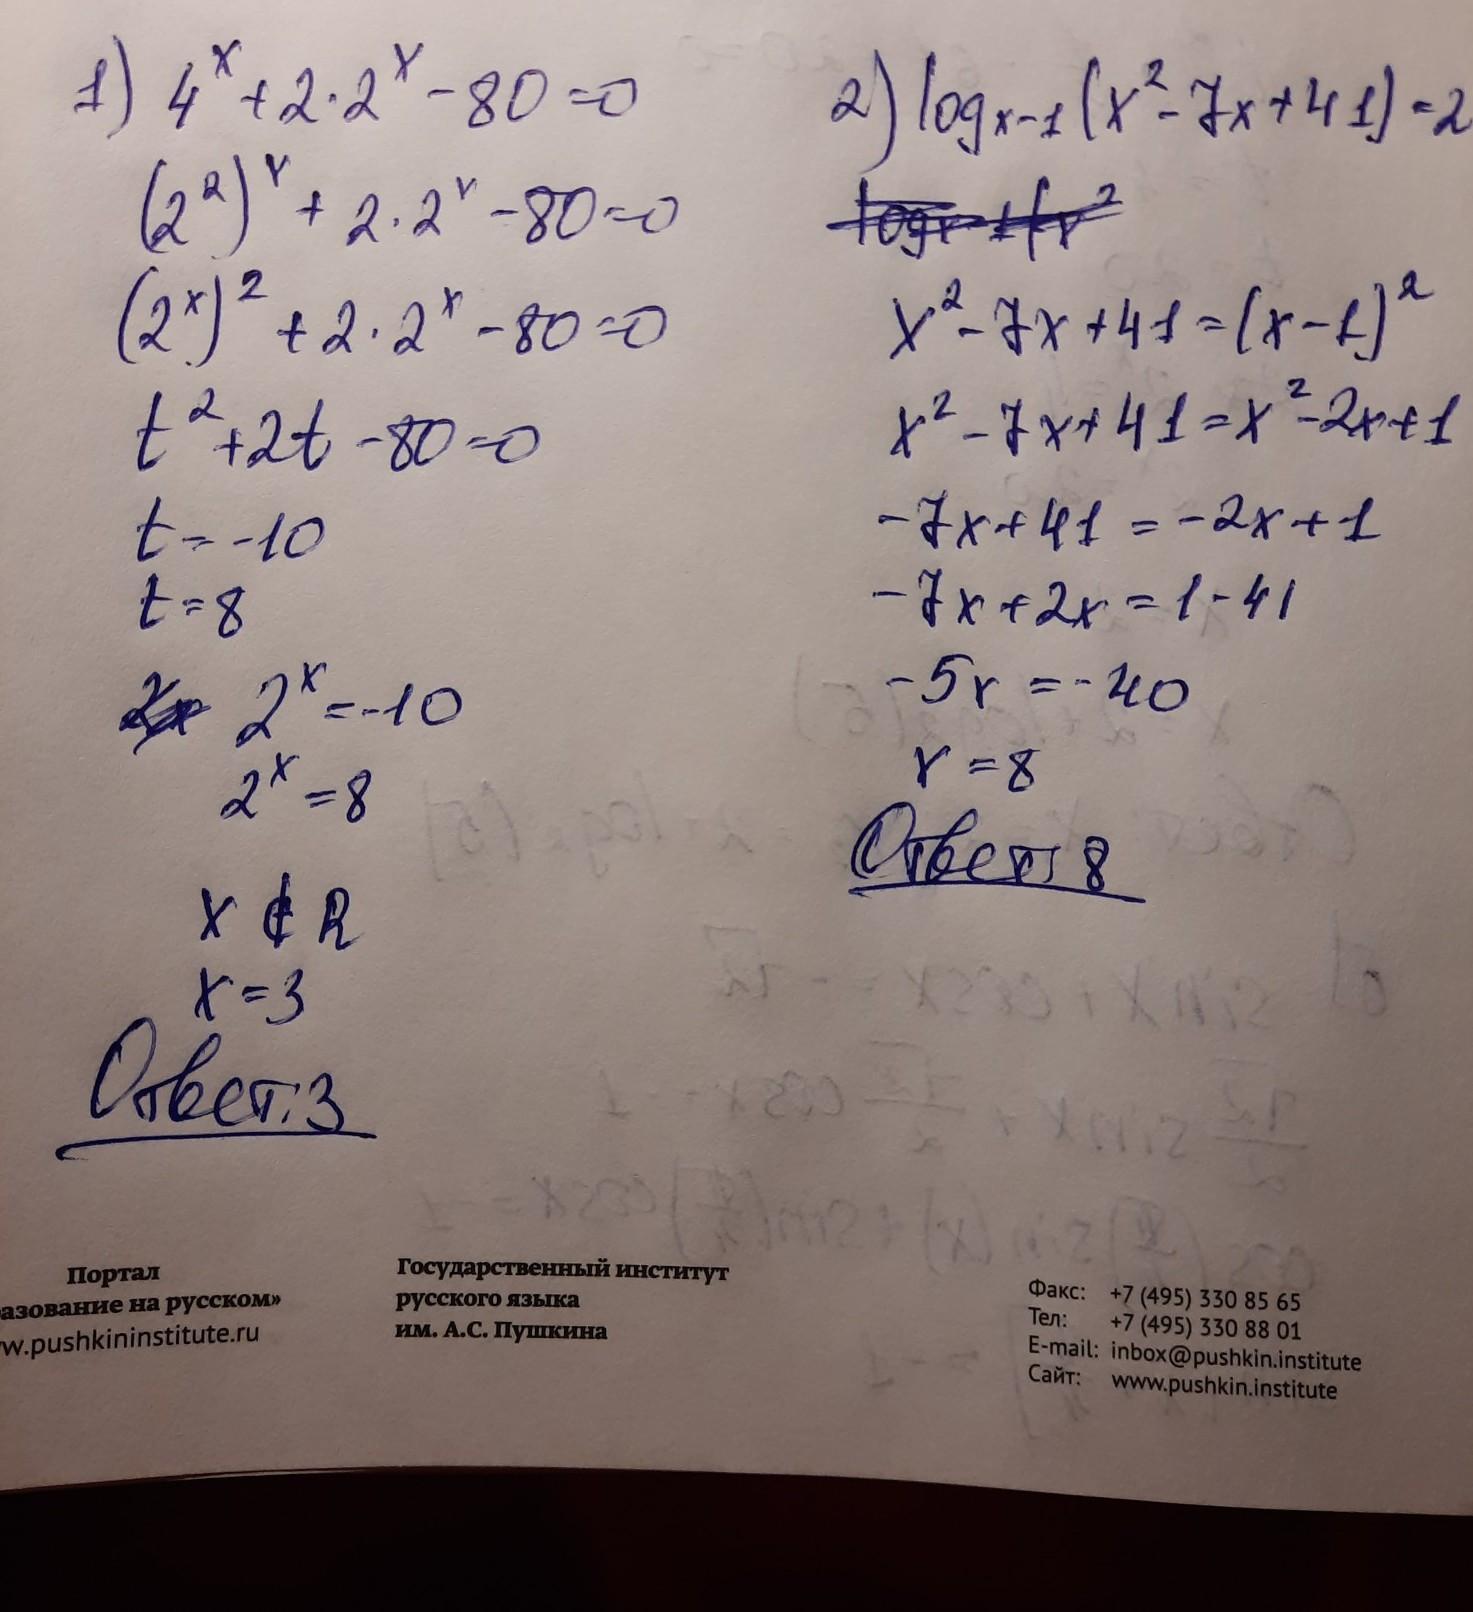 1) 4^x + 2·2^x - 80 = 0
(2^2)^x + 2·2^x - 80 = 0
(2^x)^2 + 2·2^x - 80 = 0
t^2 + 2t - 80 = 0
t = -10
t = 8
2^x = -10
2^x = 8
x ∉ R
x = 3
Ответ: 3
2) log_{x-1} (x^2 - 7x + 41) = 2
x^2 - 7x + 41 = (x - 1)^2
x^2 - 7x + 41 = x^2 - 2x + 1
-7x + 41 = -2x + 1
-7x + 2x = 1 - 41
-5x = -40
x = 8
Ответ: 8
Портал
азование на русском»
w.pushkininstitute.ru
Государственный институт
русского языка
им. А.С. Пушкина
Факс: +7 (495) 330 85 65
Тел: +7 (495) 330 88 01
E-mail: inbox@pushkin.institute
Сайт: www.pushkin.institute